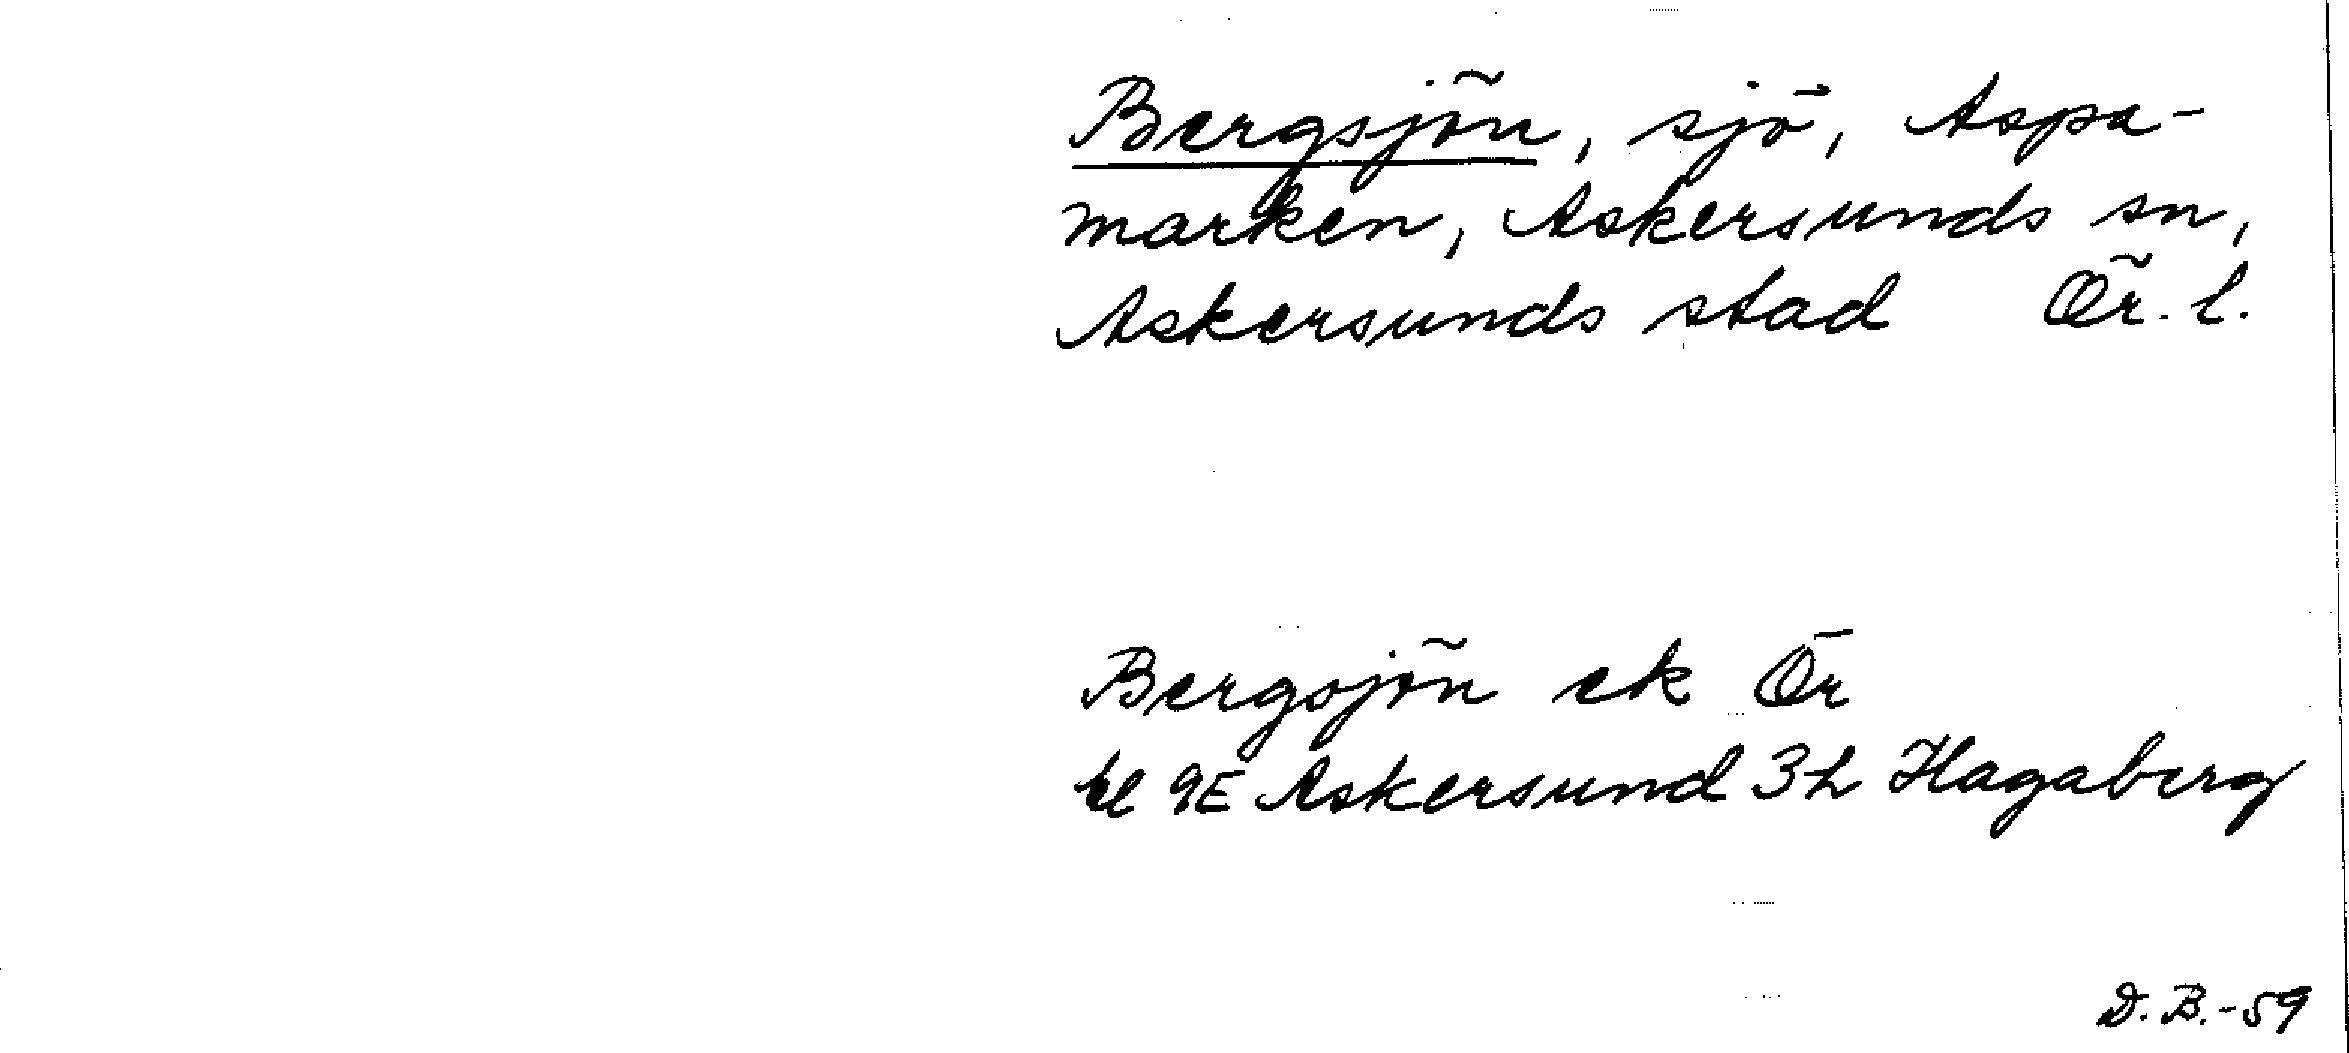 Bergsjön, sjö, Aspa-
marken, Askersunds sn,
Askersunds stad Ör. l.
Bergsjön ek Ör
bl 9E Askersund 3h Hagaberg
D.B.-59